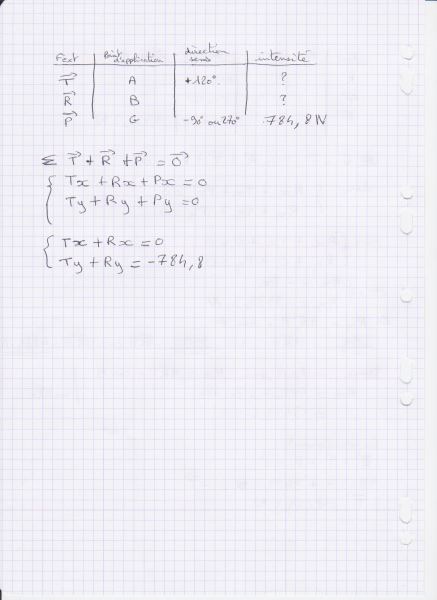 Fext | Point d'application | direction sens | intensité
T→ | A | +120°. | ?
R→ | B | ?
P→ | G | -90° ou 270° | 784,8 N
Σ T→ + R→ + P→ = 0→
{ Tx + Rx + Px = 0
Ty + Ry + Py = 0
{ Tx + Rx = 0
Ty + Ry = -784,8